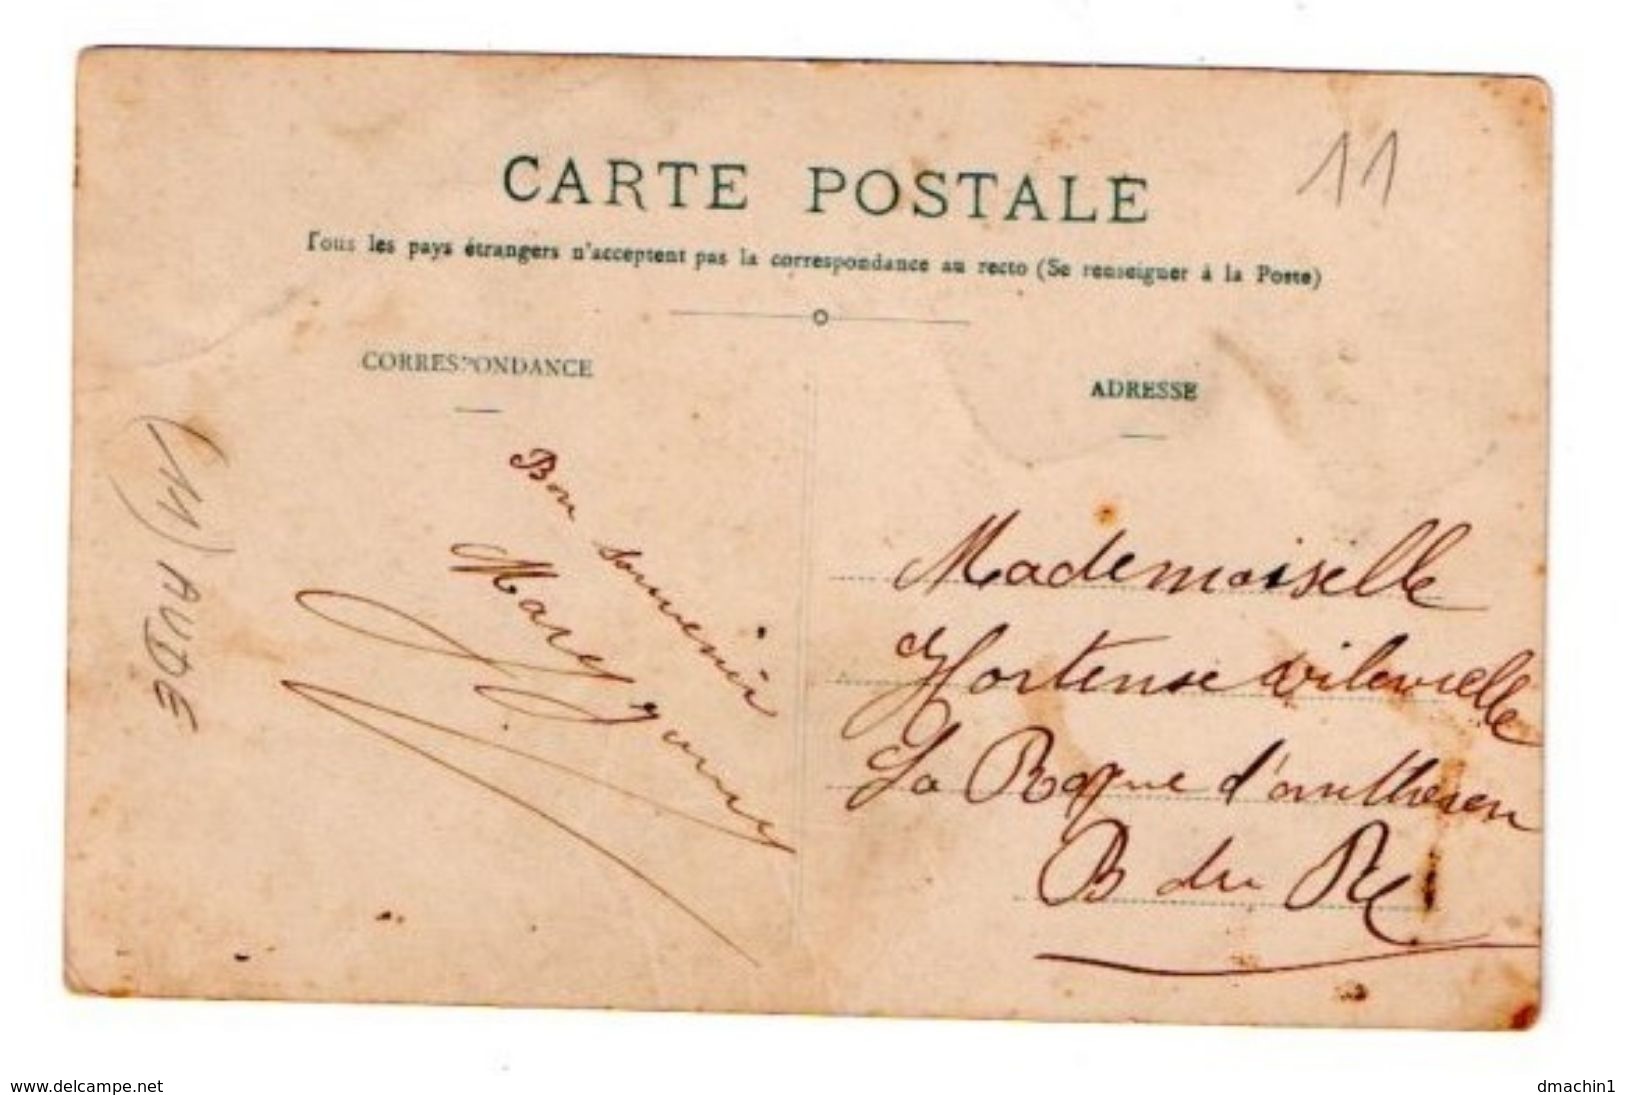 11
CARTE POSTALE
Tous les pays étrangers n'acceptent pas la correspondance au recto (Se renseigner à la Poste)
CORRESPONDANCE
ADRESSE
Bon souvenir
AUDE (11)
Mademoiselle
Hortense
La Roque d'antheron
B du R
www.delcampe.net
dmachin1